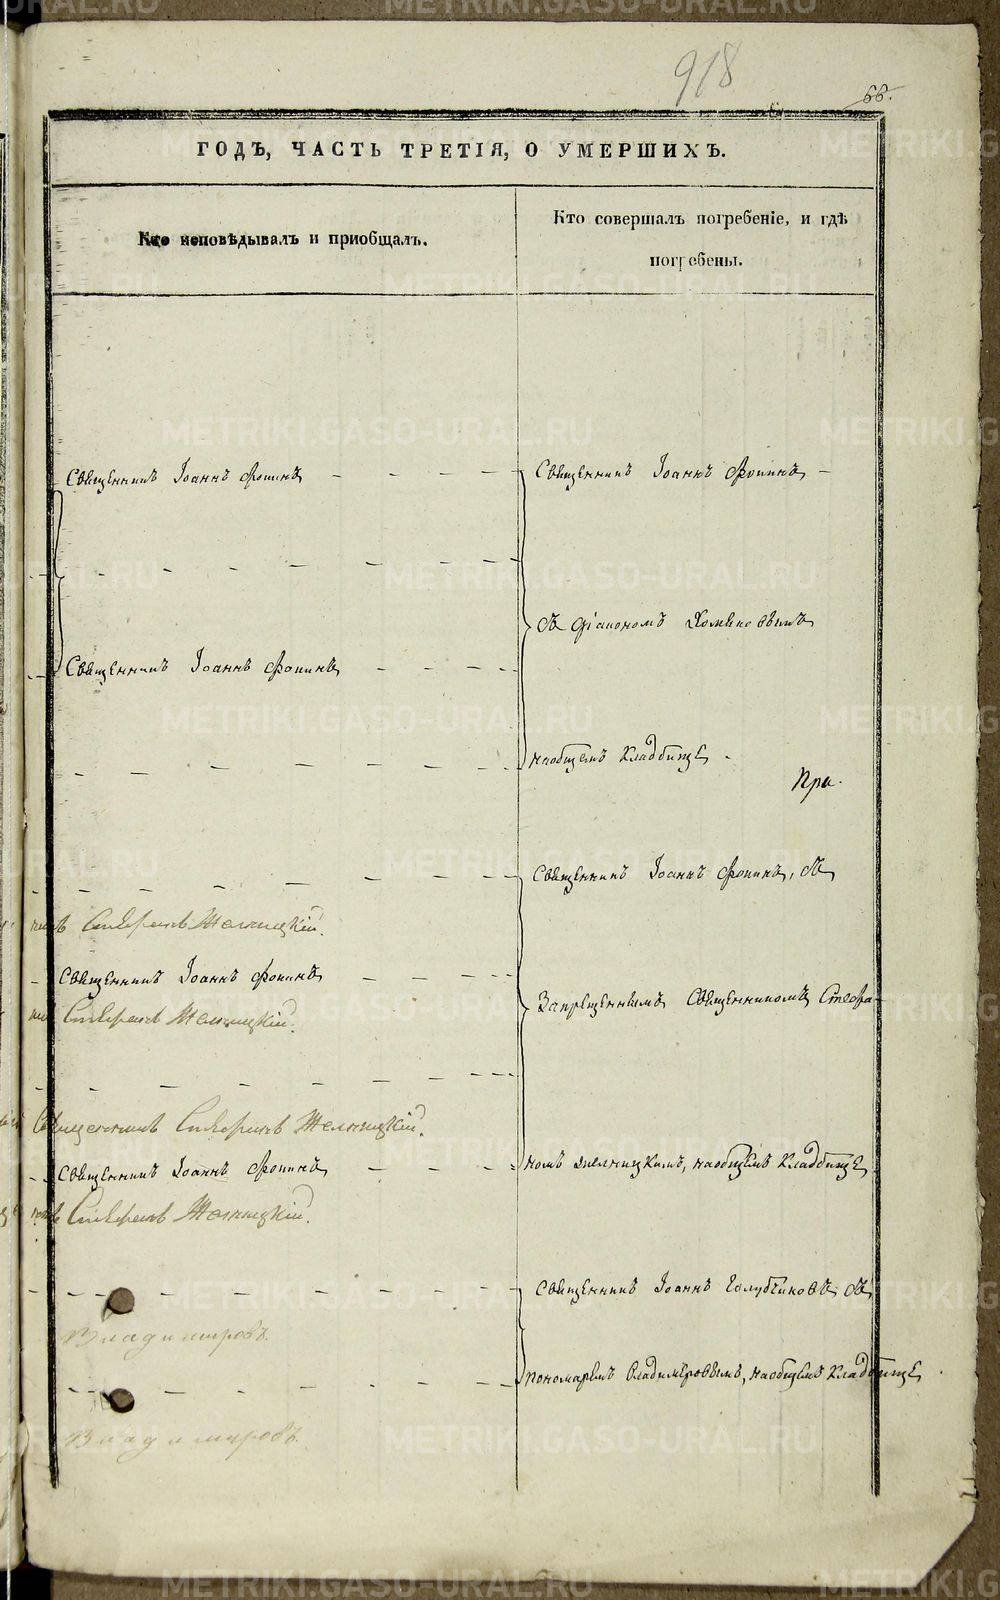 918
66.
ГОДЪ, ЧАСТЬ ТРЕТІЯ, О УМЕРШИХЪ.
Кто исповѣдывалъ и приобщалъ.
Кто совершалъ погребеніе, и гдѣ
погребены.
Священникъ Іоаннъ Фонинъ
Священникъ Іоаннъ Фонинъ
Съ Діакономъ
Священникъ Іоаннъ Фонинъ
на общемъ кладбище.
При.
Священникъ Іоаннъ Фонинъ, съ
Жельницкій.
Священникъ Іоаннъ Фонинъ
Запрещеннымъ Священникомъ Стефа-
Жельницкій.
Священникъ Жельницкій.
Священникъ Іоаннъ Фонинъ
номъ Жельницкимъ, на общемъ кладбище
Жельницкій.
Священникъ Іоаннъ Голубчиковъ съ
Владимировъ.
пономаремъ Владиміровымъ, на общемъ кладбище
Владимировъ.
METRIKI.GASO-URAL.RU